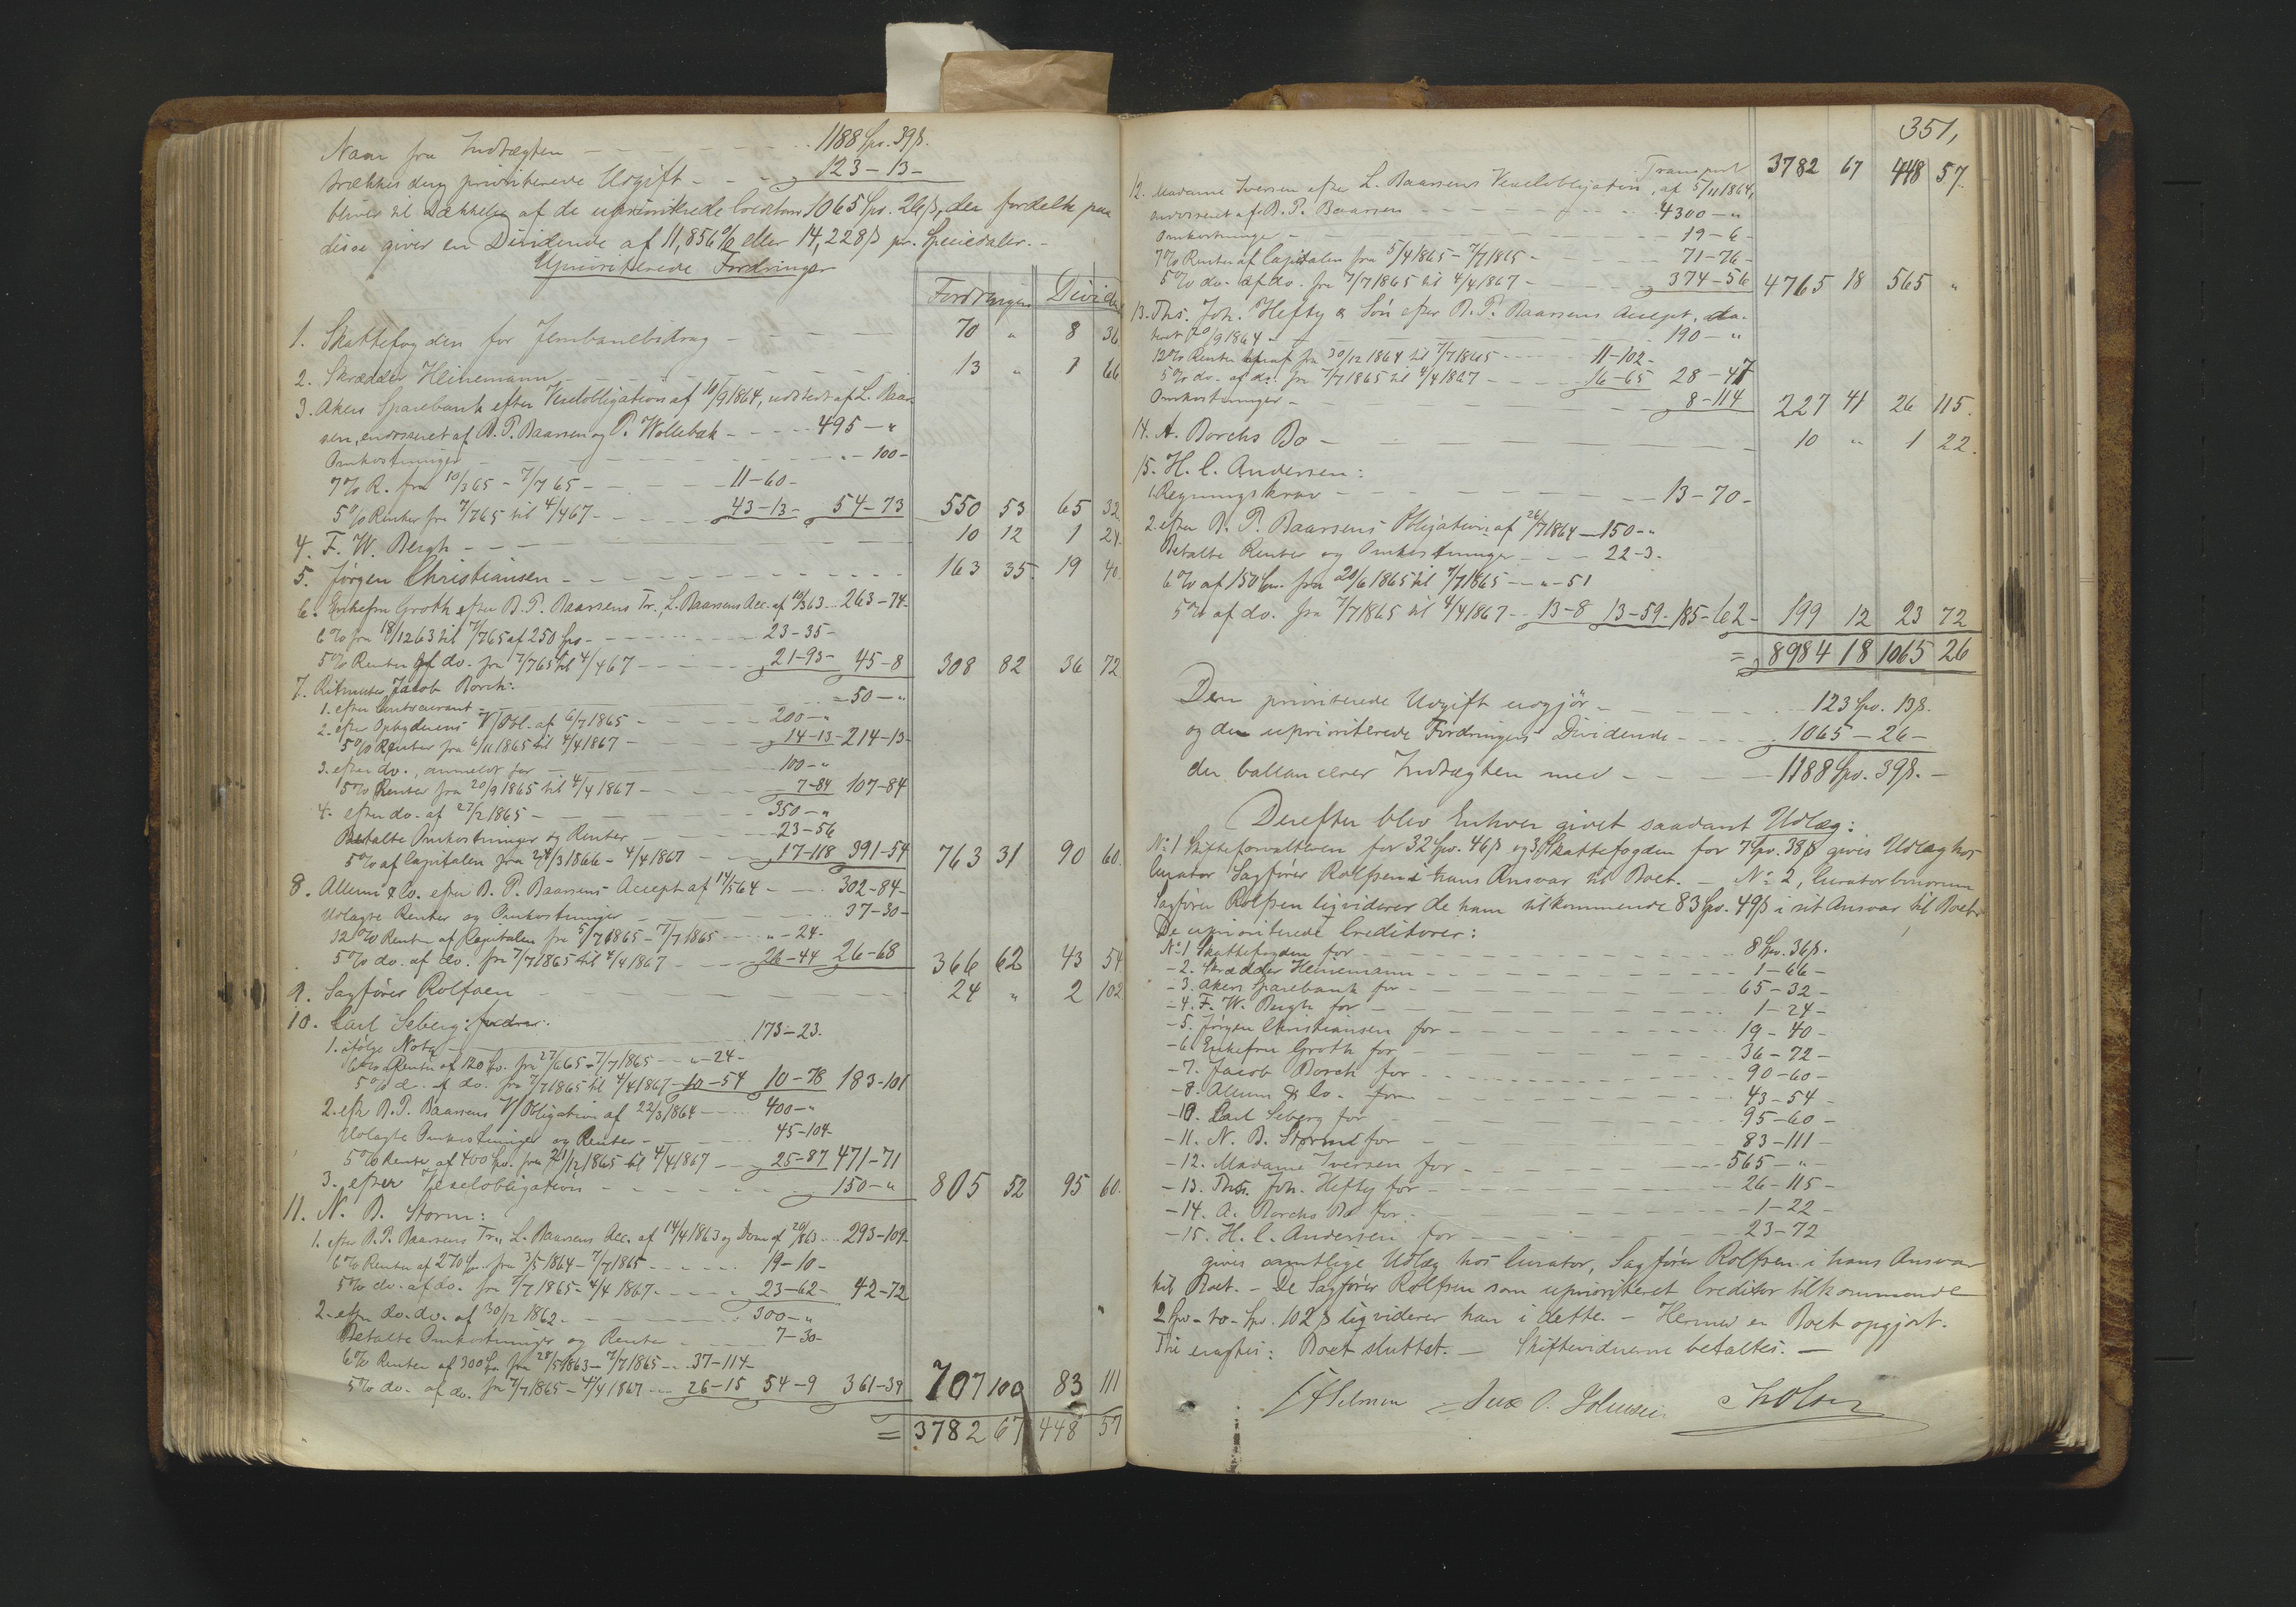 Naar fra Indtægten - - - 1188 Spd. 39 ß.
trækkes den prioriterede Udgift - - - 123 - 13 -
bliver til Dækkelse af de uprioriterede Creditorer 1065 Spd. 26 ß, der fordelte paa
disse giver en Dividende af 11,856 % eller 14,228 ß pr. Speciedaler. -
Uprioriterede Fordringer
Fordringen Divid.
1. Skattefogden for Jernbanebidrag - - - 70 " 8 36
2. Skrædder Heinemann - - - 13 " 1 66
3. Akers Sparebank efter Vexelobligation af 10/9 1864, udstedt af L. Baar-
sen, endosseret af B. P. Baarsen og P. Wollebæk - - - 495 - "
Omkostninger - - - " - 100 -
7 % R. fra 10/3 65 - 7/7 65 - - - 11 - 60 -
5 % Renter fra 7/7 65 til 4/4 67 - - - 43 - 13 - 54 - 73 550 53 65 32.
4. F. W. Bergh - - - 10 12 1 24.
5. Jørgen Christiansen - - - 163 35. 19 40.
6. Enkefru Groth efter B. P. Baarsens Tr., L. Baarsens Acc. af 18/3 63 - 263 - 74 -
6 % fra 18/12 63 til 7/7 65 af 250 Spd. - - - 23 - 35 -
5 % Renter af do. fra 7/7 65 til 4/4 67 - - - 21 - 93 - 45 - 8 308 82 36 72
7. Ritmester Jacob Borch:
1. efter Contocurant - - - 50 - "
2. efter Opbyderens V/Obl. af 6/7 1865 - - - 200 - "
5 % Renter fra 6/11 1865 til 4/4 1867 - - - 14 - 13 - 214 - 13 -
3. efter do., anmeldt for - - - 100 - "
5 % Renter fra 20/9 1865 til 4/4 1867 - - - 7 - 84 107 - 84
4. efter do. af 27/2 1865 - - - 350 - "
Betalte Omkostninger og Renter - - - 23 - 56
5 % af Capitalen fra 24/3 1866 - 4/4 1867 - - - 17 - 118 391 - 54 763 31 90 60.
8. Allum & Co. efter B. P. Baarsens Accept af 14/5 64 - - - 302 - 84 -
Udlagte Renter og Omkostninger - - - 37 - 30 -
12 % Rente af Capitalen fra 5/7 1865 - 7/7 1865 - - - " - 24 -
5 % do. af do. fra 7/7 1865 til 4/4 1867 - - - 26 - 44 26 - 68 366 62 43 54
9. Sagfører Rolfsen - - - 24 " 2 102
10. Carl Seberg:
1. ifølge Nota - - - 173 - 23.
6 % Rente af 120 Spd. fra 27/6 65 - 7/7 1865 - - " - 24 -
5 % do. af do. fra 7/7 1865 til 4/4 1867 - 10 - 54 10 - 78 183 - 101
2. eftr B. P. Baarsens V/Obligation af 22/3 1864 - - - 400 - "
Udlagte Omkostninger og Renter - - - 45 - 104 -
5 % Rente af 400 Spd. fra 21/12 1865 til 4/4 1867 - - - 25 - 87 471 - 71
3. efter Vexelobligation - - - 150 - " 805 52 95 60.
11. N. B. Storm:
1. efter B. P. Baarsens Tr., L. Baarsens Acc. af 14/4 1863 og Dom af 20/8 63 - - 293 - 109 -
6 % Renter af 270 Spd. fra 3/5 1864 - 7/7 1865 - - - 19 - 10 -
5 % do. af do. fra 7/7 1865 - 4/4 1867 - - - 23 - 62 - 42 - 72
2. efter do. do. af 30/12 1862 - - - 300 - "
Betalte Omkostninger og Renter - - - 7 - 30 -
6 % Renter af 300 Spd. fra 28/5 1863 - 7/7 1865 - - 37 - 114 -
5 % do. af do. fra 7/7 1865 - 4/4 1867 - - 26 - 15 54 - 9 361 - 39 707 100 83 111
= 3782 67 448 57
351,
Transport 3782 67 448 57.
12. Madame Iversen efter L. Baarsens Vexelobligation, af 5/11 1864,
endosseret af B. P. Baarsen - - - 4300 - "
Omkostninger - - - 19 - 6 -
7 % Renter af Capitalen fra 5/4 1865 - 7/7 1865 - - - 71 - 76 -
5 % do. af do. fra 7/7 1865 til 4/4 1867 - - - 374 - 56 4765 18 565 "
13. Ths. Joh. Hefty & Søn efter B. P. Baarsens Accept, da-
teret 20/9 1864 - - - 190 - "
12 % Renter heraf fra 30/12 1864 til 7/7 1865 - - - 11 - 102 -
5 % do. af do. fra 7/7 1865 til 4/4 1867 - - - 16 - 65 28 - 47
Omkostninger - - - 8 - 114 227 41 26 115.
14. A. Borchs Bo - - - 10 " 1 22.
15. H. C. Andersen:
1. Regningskrav - - - 13 - 70 -
2. efter B. P. Baarsens Obligation af 26/7 1864 - 150 - "
Betalte Renter og Omkostninger - - - 22 - 3 -
6 % af 150 Spd. fra 20/6 1865 til 7/7 1865 - - " - 51
5 % af do. fra 7/7 1865 til 4/4 1867 - - 13 - 8 13 - 59 - 185 - 62 - 199 12 23 72
= 8984 18 1065 26
Den prioriterede Udgift udgjør - - - 123 Spd. 13 ß.
og den uprioriterede Fordringers Dividende - - - 1065 - 26 -
der ballancerer Indtægten med - - - 1188 Spd. 39 ß. -
Derefter blev Enhver givet saadant Udlæg:
No 1 Skifteforvalteren for 32 Spd. 46 ß og 3, Skattefogden for 7 Spd. 38 ß gives Udlæg hos
Curator Sagfører Rolfsen i hans Ansvar til Boet. - No 2, Curator bonorum
Sagfører Rolfsen liqviderer de ham tilkommende 83 Spd. 49 ß i sit Ansvar til Boet.
De uprioriterede Creditorer:
No 1 Skattefogden for - - - 8 Spd. 36 ß.
- 2. Skrædder Heinemann - - - 1 - 66 -
- 3. Akers Sparebank for - - - 65 - 32 -
- 4. F. W. Bergh for - - - 1 - 24 -
- 5. Jørgen Christiansen for - - - 19 - 40 -
- 6. Enkefru Groth for - - - 36 - 72 -
- 7. Jacob Borch for - - - 90 - 60 -
- 8. Allum & Co. for - - - 43 - 54 -
- 10. Carl Seberg for - - - 95 - 60 -
- 11. N. B. Storm for - - - 83 - 111 -
- 12. Madame Iversen for - - - 565 - " -
- 13. Ths. Joh. Hefty for - - - 26 - 115 -
- 14. A. Borchs Bo for - - - 1 - 22 -
- 15. H. C. Andersen for - - - 23 - 72
gives samtlige Udlæg hos Curator, Sagfører Rolfsen i hans Ansvar
til Boet. - De Sagfører Rolfsen som uprioriteret Creditor tilkommende
2 Spd. - to - Spd. 102 ß liqviderer han i dette. - Hermed er Boet opgjort.
Thi eragtes: Boet sluttet. - Skiftevidnerne betaltes. -